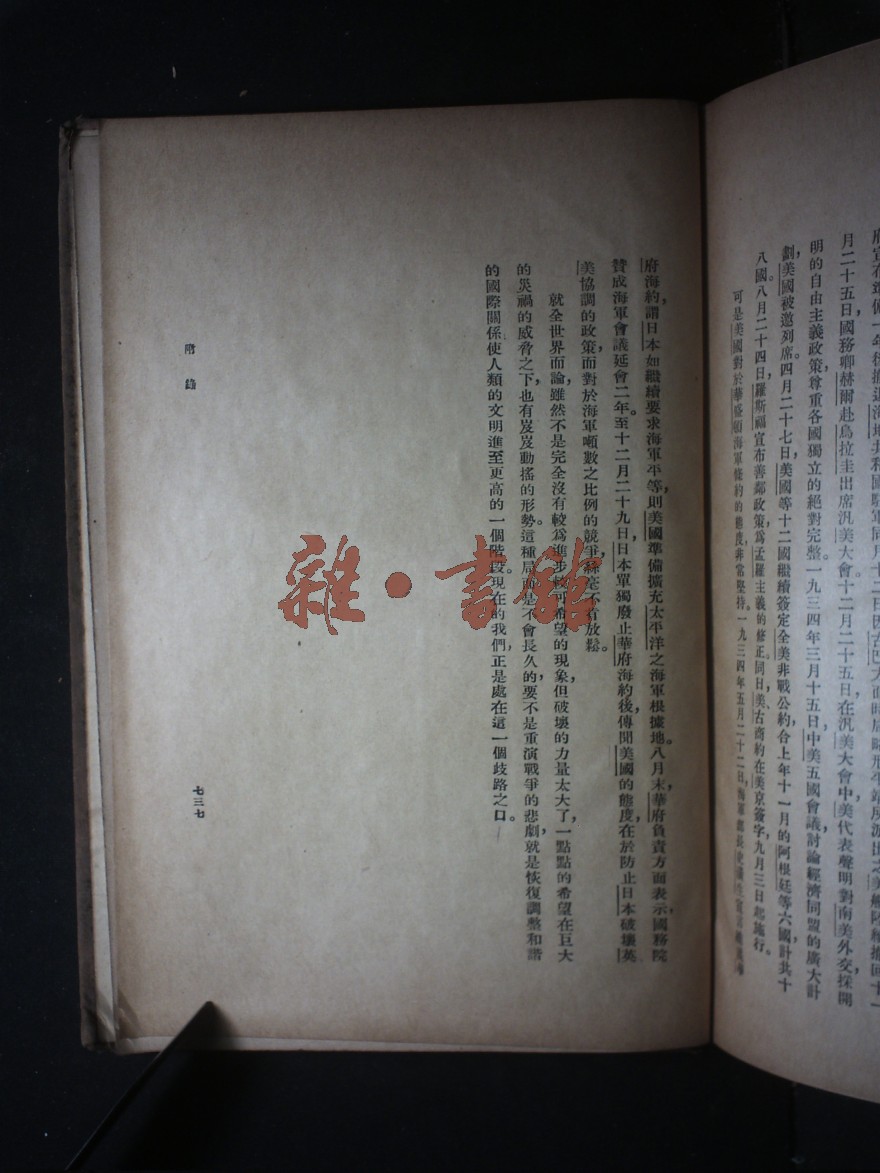 月二十五日國務卿赫爾赴烏拉圭出席汎美大會十二月二十五日在汎美大會中美代表聲明對南美外交採開
明的自由主義政策尊重各國獨立的絕對完整一九三四年三月十五日中美五國會議討論經濟同盟的廣大計
劃，美國被邀列席。四月二十七日美國等十二國繼續簽定全美非戰公約合上年十一月的阿根廷等六國計共十
八國。八月二十四日羅斯福宣布善鄰政策，為孟羅主義的修正。同日，美、古商約在美京簽字，九月三日起施行。
可是美國對於華盛頓海軍條約的態度，非常堅持。一九三四年五月二十二日，海軍部長
府海約，謂日本如繼續要求海軍平等，則美國準備擴充太平洋之海軍根據地。八月末，華府負責方面表示，國務院
贊成海軍會議延會二年。至十二月二十九日，日本單獨廢止華府海約後，傳聞美國的態度，在於防止日本破壞英
美協調的政策，而對於海軍噸數之比例的競爭，絲毫不肯放鬆。
就全世界而論，雖然不是完全沒有較為進步較可希望的現象，但破壞的力量太大了，一點點的希望在巨大
的災禍的威脅之下，也有岌岌動搖的形勢。這種局面是不會長久的，要不是重演戰爭的悲劇，就是恢復調整和諧
的國際關係使人類的文明進至更高的一個階段。現在的我們，正是處在這一個歧路之口。
附錄
七三七
雜·書館